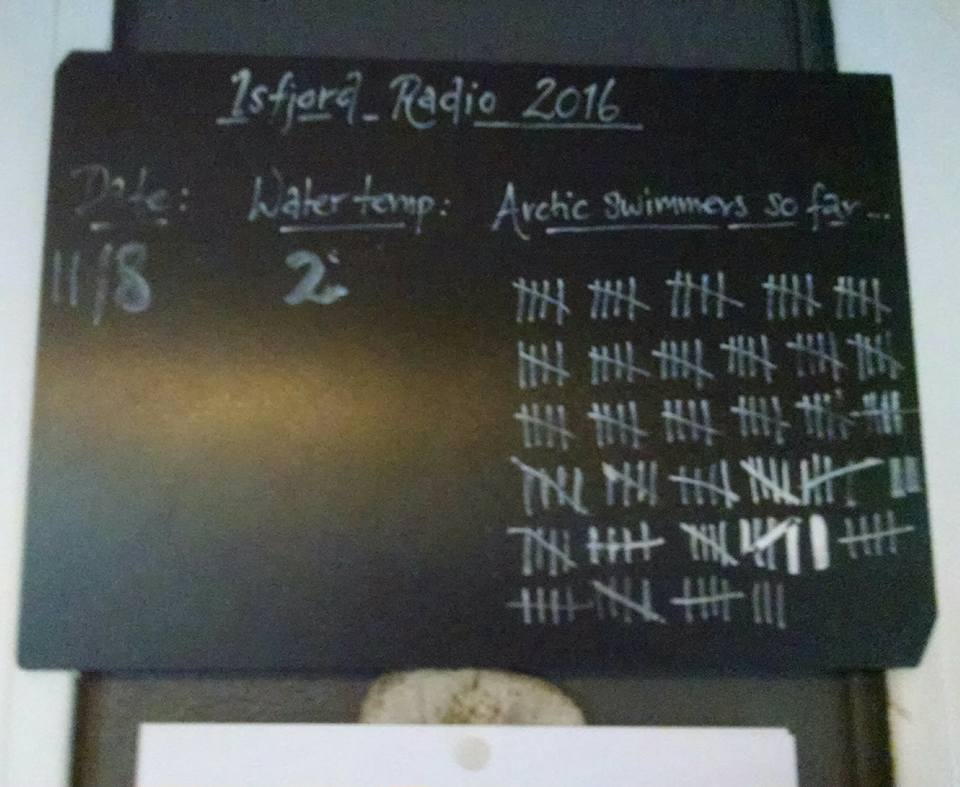 Isfjord Radio 2016
Date: Water temp: Arctic swimmers so far...
11/8 2°